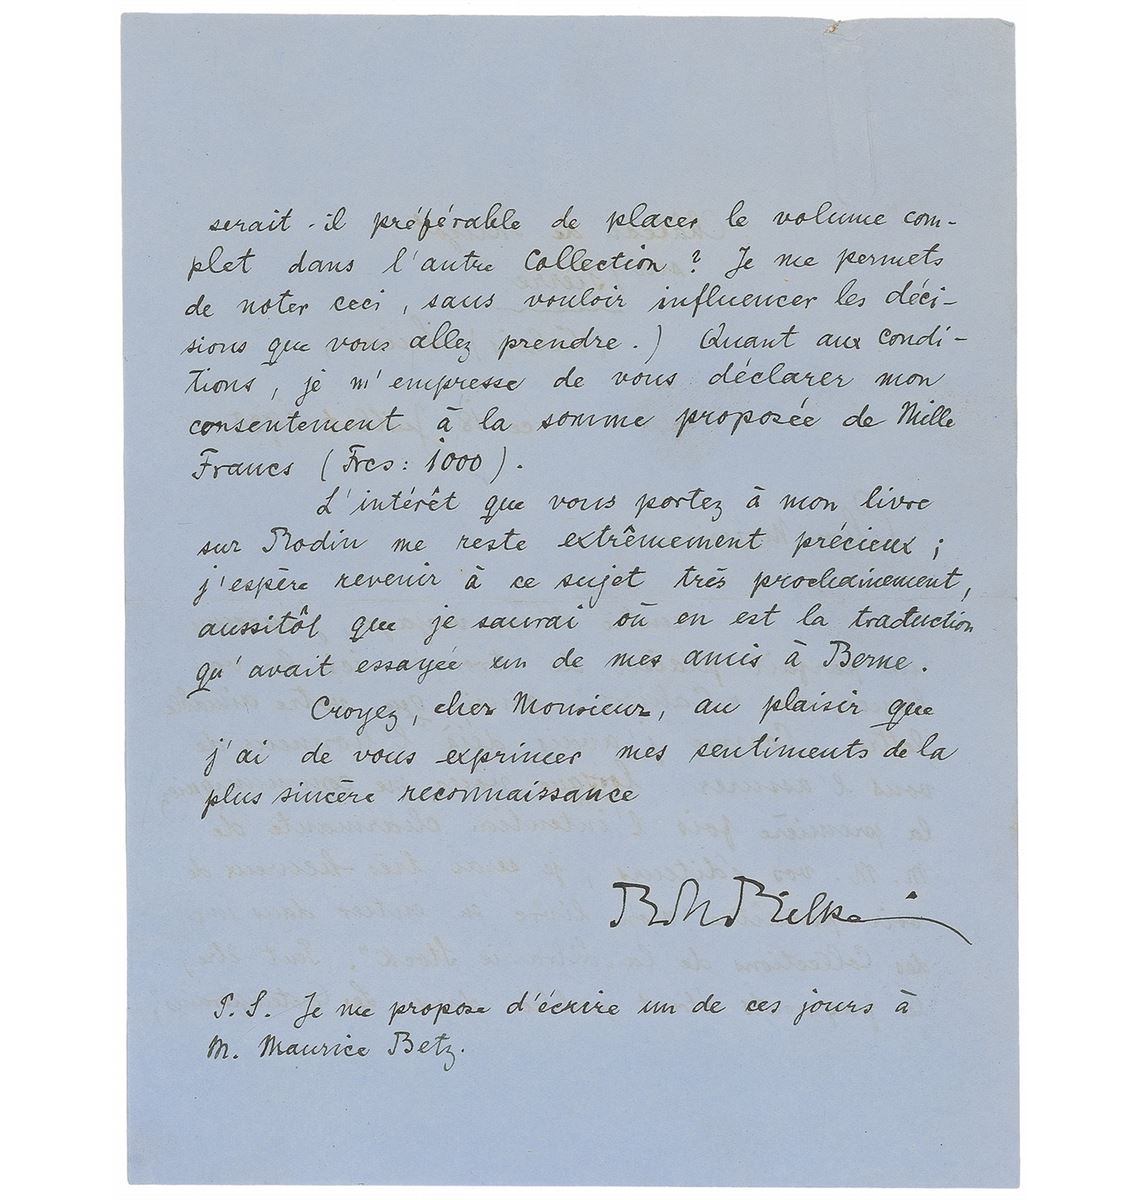 serait-il préférable de placer le volume com-
plet dans l'autre Collection ? Je me permets
de noter ceci, sans vouloir influencer les déci-
sions que vous allez prendre.) Quant aux condi-
tions, je m'empresse de vous déclarer mon
consentement à la somme proposée de Mille
Francs (Frcs: 1000).
L'intérêt que vous portez à mon livre
sur Rodin me reste extrêmement précieux ;
j'espère revenir à ce sujet très prochainement,
aussitôt que je saurai où en est la traduction
qu'avait essayée un de mes amis à Berne.
Croyez, cher Monsieur, au plaisir que
j'ai de vous exprimer mes sentiments de la
plus sincère reconnaissance
RM Rilke
P.S. Je me propose d'écrire un de ces jours à
M. Maurice Betz.